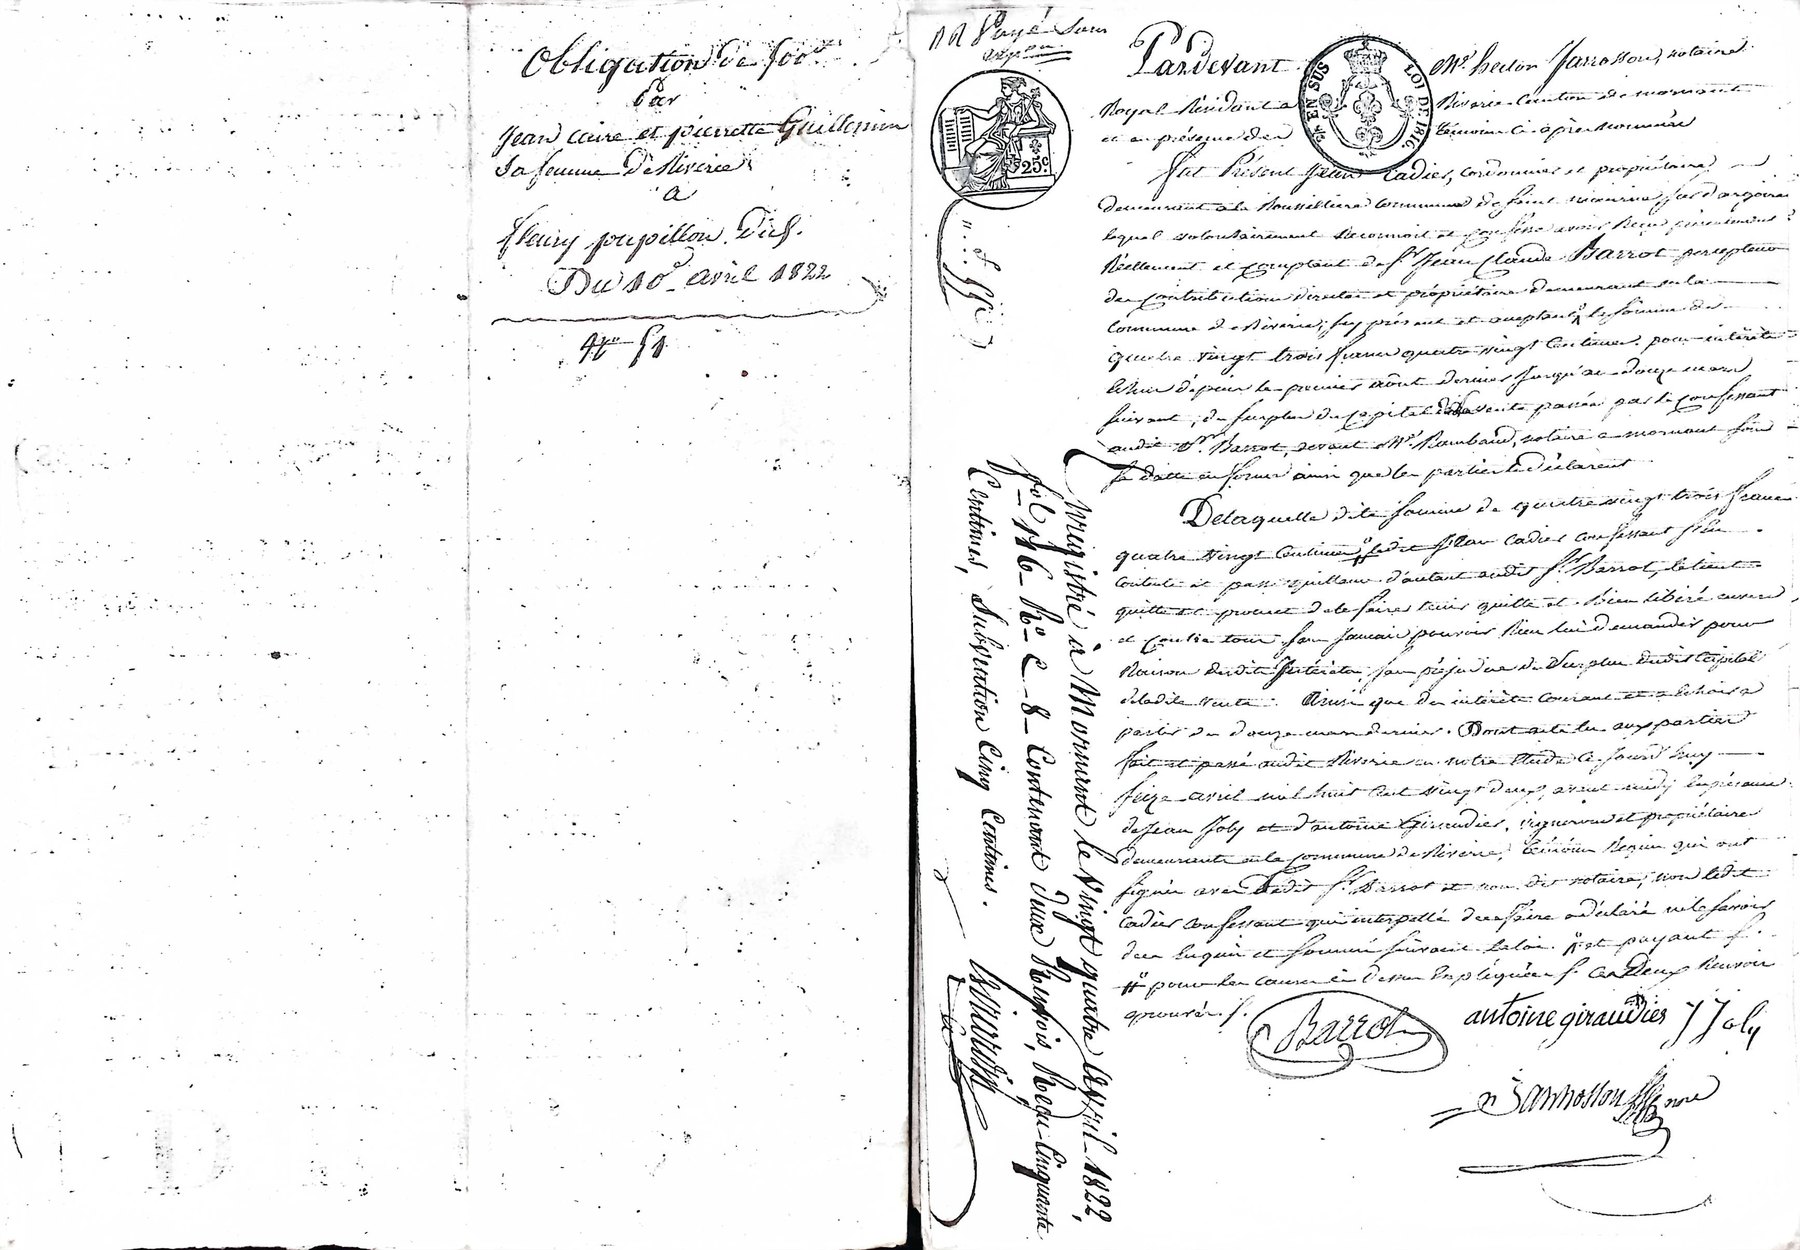 Obligation de 500f
Par
Jean Caire et pierrette Guillermin
Sa femme De Riverie
a
fleury papillon. Dict.
Du 10e avril 1822
No 51
Payé Sans
25c.
EN SUS
LOI DE 1816
Pardevant Me. hector Jarrosson, notaire
Royal Résidant a Riverie Canton de mornant
et en présence des témoins ci-après nommés
fut Présent Jean Cadier, cordonnier et propriétaire
demeurant a la Rousselliere Commune de Saint maurice sur dargoire
lequel volontairement reconnoit et confesse avoir Reçu présentement
Réellement et comptant de Sr. Jean Claude Barrot percepteur
des contributions directes et propriétaire demeurant en la
Commune de Riverie, icy présent et acceptant la somme de
quatre vingt trois francs quatre vingt Centimes pour intérêts
échus depuis le premier août dernier Jusqu'au douze mars
suivant, du surplus du Capital de la vente passée par le confessant
audit Sr. Barrot, devant Me. Rambaud, notaire a mornant sous
sa datte en forme ainsi que les parties le déclarent
De laquelle dite somme de quatre vingt trois francs
quatre vingt Centimes ledit Jean Cadier confessant s'en
contente et passe quittance d'autant audit Sr. Barrot, le tient
quitte et promet de le faire tenir quitte et bien libéré envers
et contre tous sans jamais pouvoir Rien lui demander pour
Raison desdits Intérêts, sans préjudice du Surplus dudit Capital
de ladite vente. Ainsi que des intérêts courants et a échoir a
partir du douze mars dernier. Dont acte lu aux parties
fait et passé audit Riverie en notre Etude Ce Jourd'huy
seize avril mil huit cent vingt deux, avant midy En présence
de Jean Joly et d'antoine Giraudier, vignerons et propriétaires
demeurants en la commune de Riverie, témoins Requis qui ont
signés avec ledit Sr. Barrot et nous dit notaire, non ledit
Cadier confessant qui interpellé de ce faire a déclaré ne le savoir
de ce Enquis et sommé suivant la loi. et payant
pour les causes ci Dessus Expliquées. Ces Deux Renvois
aprouvés
Barrot
antoine giraudier
J Joly
Jarrosson nore
Enregistré à Mornant le Vingt quatre Avril 1822,
fol. 116 Ro C 8 Contenant Deux Renvois, Reçu Cinquante
Centimes, Subvention Cinq Centimes.